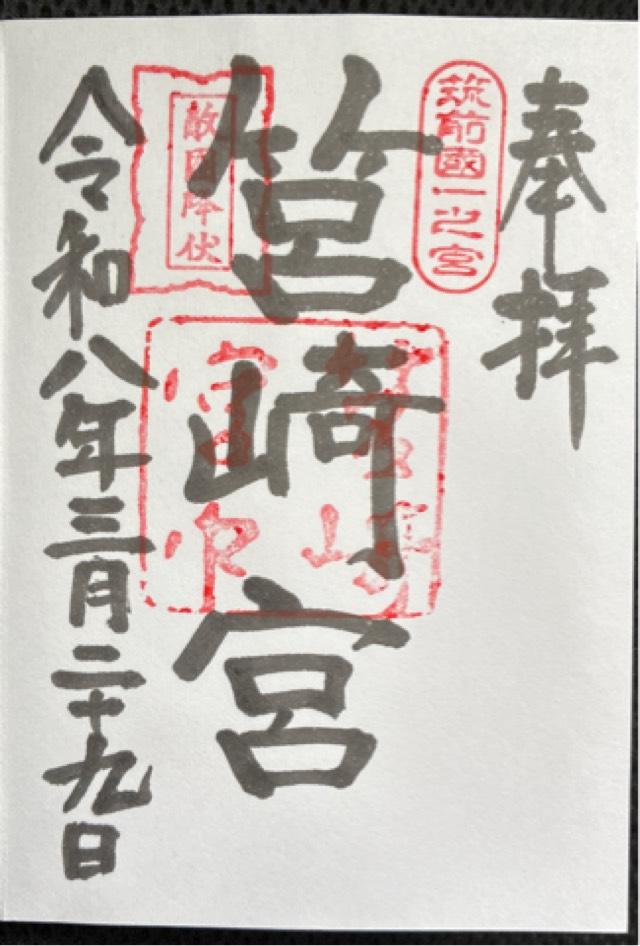 奉拝
筑前國一之宮
筥崎宮
敵国降伏
令和八年三月二十九日